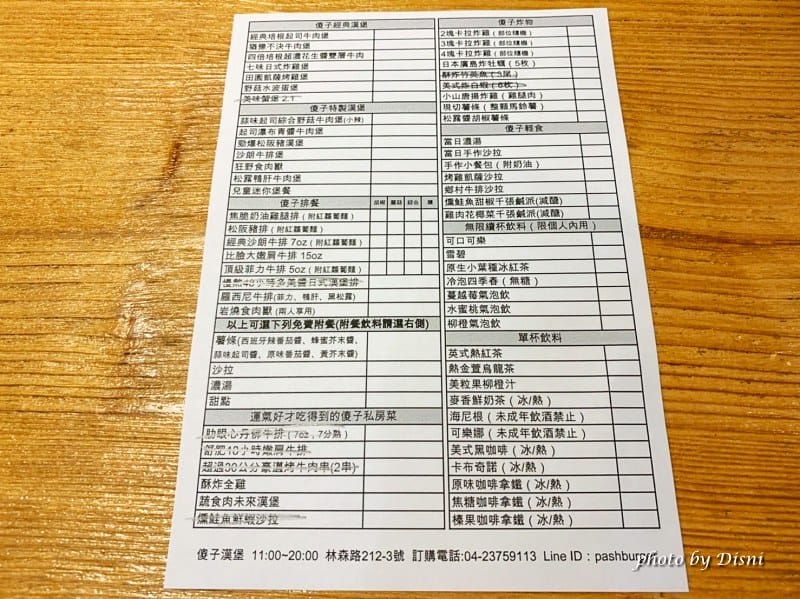 傻子經典漢堡
經典培根起司牛肉堡
猶豫不決牛肉堡
四倍培根超濃花生醬雙層牛肉
七味日式炸雞堡
田園凱薩烤雞堡
野菇水波蛋堡
美味蟹堡 2.1
傻子特製漢堡
蒜味起司綜合野菇牛肉堡(小辣)
起司瀑布青醬牛肉堡
勁爆松阪豬漢堡
沙朗牛排堡
狂野食肉獸
松露鴨肝牛肉堡
兒童迷你堡餐
傻子排餐 胡椒 蘑菇 綜合 鹽
焦脆奶油雞腿排(附紅蘿蔔麵)
松阪豬排(附紅蘿蔔麵)
經典沙朗牛排 7oz(附紅蘿蔔麵)
比臉大嫩肩牛排 15oz
頂級菲力牛排 5oz(附紅蘿蔔麵)
慢熬48小時多美醬日式漢堡排
羅西尼牛排(菲力、鴨肝、黑松露)
岩燒食肉獸(兩人享用)
以上可選下列免費附餐(附餐飲料請選右側)
薯條(西班牙辣番茄醬、蜂蜜芥末醬、
蒜味起司醬、原味番茄醬、黃芥末醬)
沙拉
濃湯
甜點
運氣好才吃得到的傻子私房菜
肋眼心丹佛牛排(7oz，7分熟)
舒肥10小時嫩肩牛排
超過30公分豪邁烤牛肉串(2串)
酥炸全雞
蔬食肉未來漢堡
燻鮭魚鮮蝦沙拉
傻子炸物
2塊卡拉炸雞(部位隨機)
3塊卡拉炸雞(部位隨機)
4塊卡拉炸雞(部位隨機)
日本廣島炸牡蠣(5枚)
酥炸竹莢魚(3尾)
美式炸白蝦(6枚)
小山唐揚炸雞(雞腿肉)
現切薯條(整顆馬鈴薯)
松露醬胡椒薯條
傻子輕食
當日濃湯
當日手作沙拉
手作小餐包(附奶油)
烤雞凱薩沙拉
鄉村牛排沙拉
燻鮭魚甜椒千張鹹派(減醣)
雞肉花椰菜千張鹹派(減醣)
無限續杯飲料(限個人內用)
可口可樂
雪碧
原生小葉種冰紅茶
冷泡四季春(無糖)
蔓越莓氣泡飲
水蜜桃氣泡飲
柳橙氣泡飲
單杯飲料
英式熱紅茶
熱金萱烏龍茶
美粒果柳橙汁
麥香鮮奶茶(冰/熱)
海尼根(未成年飲酒禁止)
可樂娜(未成年飲酒禁止)
美式黑咖啡(冰/熱)
卡布奇諾(冰/熱)
原味咖啡拿鐵(冰/熱)
焦糖咖啡拿鐵(冰/熱)
榛果咖啡拿鐵(冰/熱)
傻子漢堡 11:00~20:00 林森路212-3號 訂購電話:04-23759113 Line ID：pashburger
photo by Disni